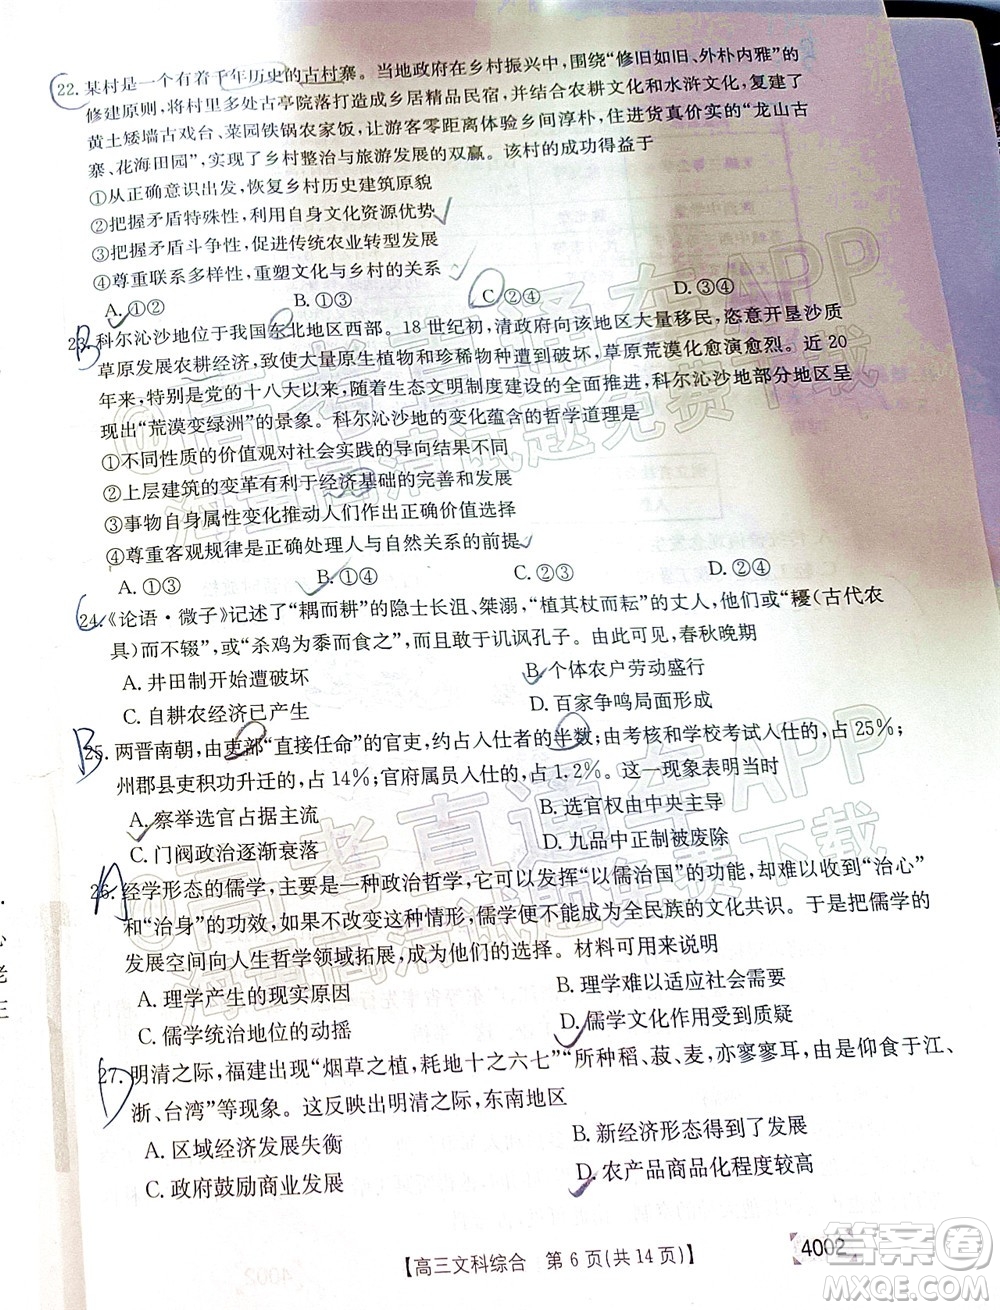 22. 某村是一个有着千年历史的古村寨。当地政府在乡村振兴中，围绕“修旧如旧、外朴内雅”的
修建原则，将村里多处古亭院落打造成乡居精品民宿，并结合农耕文化和水浒文化，建
黄土矮墙古戏台、菜园铁锅农家饭，让游客零距离体验乡间淳朴，住进货真价实的“龙山古
寨、花海田园”，实现了乡村整治与旅游发展的双赢。该村的成功得益于
①从正确意识出发，恢复乡村历史建筑原貌
②把握矛盾特殊性，利用自身文化资源优势
③把握矛盾斗争性，促进传统农业转型发展
④尊重联系多样性，重塑文化与乡村的关系
A. ①② B. ①③ C. ②④ D. ③④
B
23. 科尔沁沙地位于我国东北地区西部。18 世纪初，清政府向该地区大量移民，恣意开垦沙质
草原发展农耕经济，致使大量原始植物和珍稀物种遭到破坏，草原荒漠化愈演愈烈。近 20
年来，特别是党的十八大以来，随着生态文明制度建设的不断加强，科尔沁沙地部分地区呈
现出“荒漠变绿洲”的景象。科尔沁沙地的变化蕴含的哲学道理是
①不同性质的价值观对社会实践的导向结果不同
②上层建筑的变革有利于经济基础的完善和发展
③事物自身属性变化推动人们作出正确价值选择
④尊重客观规律是正确处理人与自然关系的前提
A. ①③ B. ①④ C. ②③ D. ②④
C
24.《论语·微子》记述了“耦而耕”的隐士长沮、桀溺，“植其杖而耘”的丈人，他们或“耰(古代农
具)而不辍”，或“杀鸡为黍而食之”，而敢于讥讽孔子。由此可见，春秋晚期
A. 井田制开始遭破坏 B. 个体农户劳动盛行
C. 自耕农经济已产生 D. 百家争鸣局面形成
B
25. 两晋南朝，由吏部“直接任命”的官吏，约占入仕者的半数；由考核和学校考试入仕的，占 25%；
州郡县吏积功升迁的，占 14%；官府属员入仕的，占 1.2%。这一现象表明当时
A. 察举选官占据主流 B. 选官权由中央主导
C. 门阀政治逐渐衰落 D. 九品中正制被废除
A
26. 经学形态的儒学，主要是一种政治哲学，它可以发挥“以儒治国”的功能，却难以收到“治心”
和“治身”的功效，如果不改变这种情形，儒学便不会成为全民族的文化共识。于是把儒学的
发展空间向人生哲学领域拓展，便成为他们的选择。材料可用来说明
A. 理学产生的现实原因 B. 理学难以适应社会需要
C. 儒学统治地位的动摇 D. 儒学文化作用受到质疑
D
27. 明清之际，福建出现“烟草之植，耗地十之六七”“所种稻、菽、麦，亦寥寥耳，由是仰食于江、
浙、台湾”等现象。这反映出明清之际，东南地区
A. 区域经济发展失衡 B. 新经济形态得到了发展
C. 政府鼓励商业发展 D. 农产品商品化程度较高
【高三文科综合 第 6 页(共 14 页)】
4002
答案圈